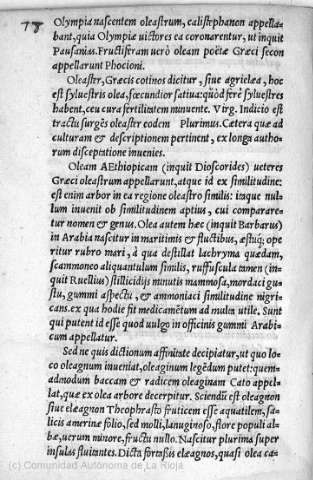 78
Olympia nascentem oleastrum, calistephanon appella-
bant, quia Olympiæ uictores ea coronarentur, ut inquit
Pausanias. Fructiferam uerò oleam poëtæ Græci secon
appellarunt Phocioni.
Oleaster, Græcis cotinos dicitur, siue agrielæa, hoc
est syluestris olea, fœcundior satiua: quòd ferè syluestres
habent, ceu cura fertilitatem minuente. Virg. Indicio est
tractu surgēs oleaster eodem Plurimus. Cætera quæ ad
culturam & descriptionem pertinent, ex longa autho-
rum disceptatione inuenies.
Oleam AEthiopicam (inquit Dioscorides) ueteres
Græci oleastrum appellarunt, atque id ex similitudine:
est enim arbor in ea regione oleastro similis: itaque nul-
lum inuenit ob similitudinem aptius, cui comparare-
tur nomen & genus. Olea autem hæc (inquit Barbarus)
in Arabia nascitur in maritimis & fluctibus, æstuq; ope
ritur rubro mari, à qua destillat lachryma quædam,
scammoneo aliquantulum similis, ruffuscula tamen (in-
quit Ruellius) stillicidijs minutis mammosa, mordaci gu-
stu, gummi aspectu, & ammoniaci similitudine nigri-
cans. ex qua hodie fit medicamētum ad mulea utile. Sunt
qui putent id esse quod uulgo in officinis gummi Arabi-
cum appellatur.
Sed ne quis dictionum affinitate decipiatur, ut quo lo-
co oleagnum inueniat, oleaginum legēdum putet: quem-
admodum baccam & radicem oleaginam Cato appel-
lat, quæ ex olea arbore decerpitur. Sciendū est oleagnon
siue eleagnon Theophrasto fruticem esse aquatilem, sa-
licis amerinæ folio, sed molli, lanuginoso, flore populi al-
bæ, uerum minore, fructu nullo. Nascitur plurima super
insulas fluitantes. Dicta fortassis elæagnos, quasi olea ca-
(c) Comunidad Autónoma de La Rioja